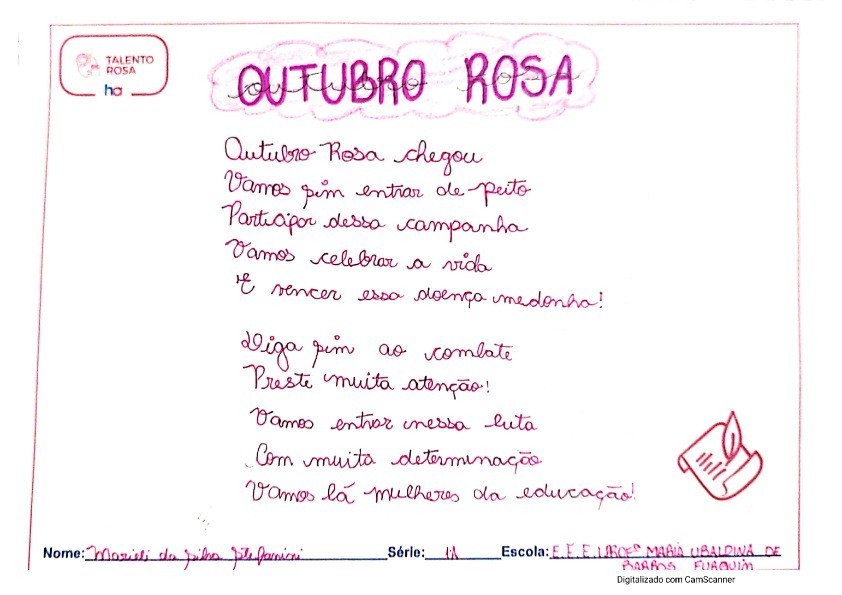 TALENTO
ROSA
ha
OUTUBRO ROSA
Outubro Rosa chegou
Vamos sim entrar de peito
Participar dessa campanha
Vamos celebrar a vida
E vencer essa doença medonha!
Diga sim ao combate
Preste muita atenção!
Vamos entrar nessa luta
Com muita determinação
Vamos lá mulheres da educação!
Nome: Marieli da Silva Stefanini Série: 1A Escola: E.E.E. MARIA UBALDINA DE
BARROS FURQUIM
Digitalizado com CamScanner